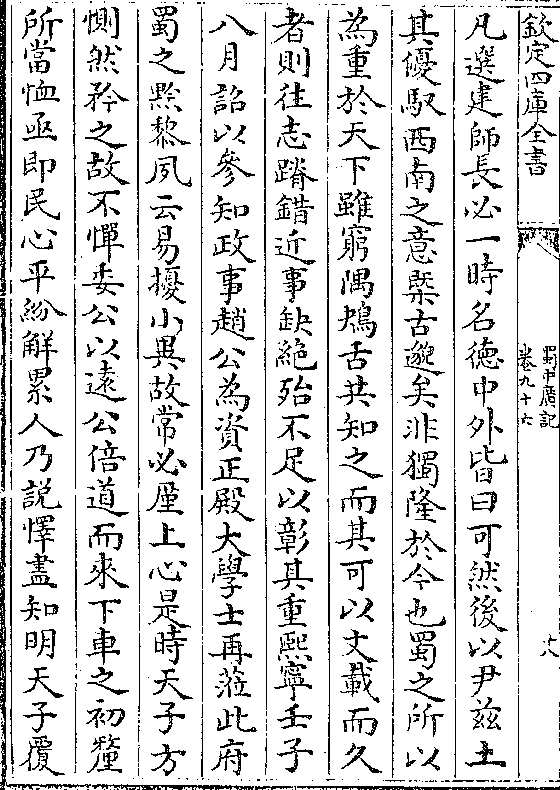 欽定四庫全書
蜀中廣記
卷九十六
廿八
凡選建師長必一時名德中外皆曰可然後以尹兹土
其優馭西南之意槩古邈矣非獨隆於今也蜀之所以
為重於天下雖窮隅鴂舌共知之而其可以文載而久
者則往志踳錯近事缺絶殆不足以彰其重熙寧壬子
八月詔以參知政事趙公為資正殿大學士再蒞此府
蜀之黔黎夙云易擾小異故常必廑上心是時天子方
惻然矜之故不憚委公以遠公倍道而來下車之初釐
所當恤亟即民心平紛解累人乃説懌盡知明天子覆